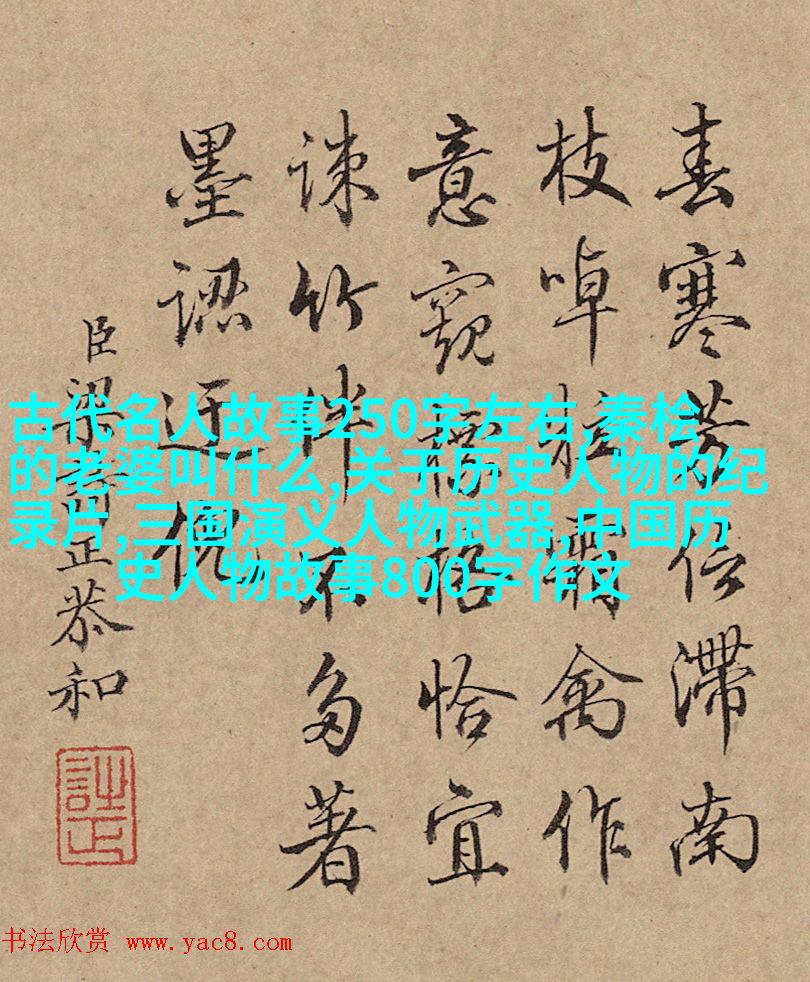 春寒芳信滯南
枝啅禽作
意窺格恰宜
竹伴不多著
墨認迂倪
臣梁詩正恭和
詩正
古代名人故事250字左右,秦桧
的老婆叫什么,关于历史人物的纪
录片,三国演义人物武器,中国历
史人物故事800字作文
书法欣赏 www.yac8.com